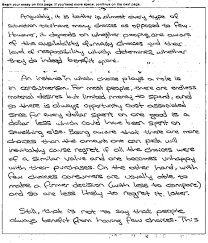 Begin your essay on this page. If you need more space, continue on the next page.
Arguably, it is better in almost every type of
situation to have many choices as opposed to few.
However, it depends on whether people are aware
of the availability of many choices and their
level of responsibility which determines whether
they do indeed benefit
An instance in which choice plays a role is
in consumerism. For most people, there are endless
material desires but limited money to spend, and
so there is always opportunity cost associated
since for every dollar spent on one good is a
dollar less which could have been spent on
something else. Being aware that there are more
choices than the amount one can pick will
inevitably cause regret if all the choices were
of a similar value and one becomes unhappy
with their purchases. On the other hand, with
few choices consumers are usually able to
make a firmer decision (with less to compare)
and so are less likely to regret it later.
Still, that is not to say that people
always benefit from having few choices. This